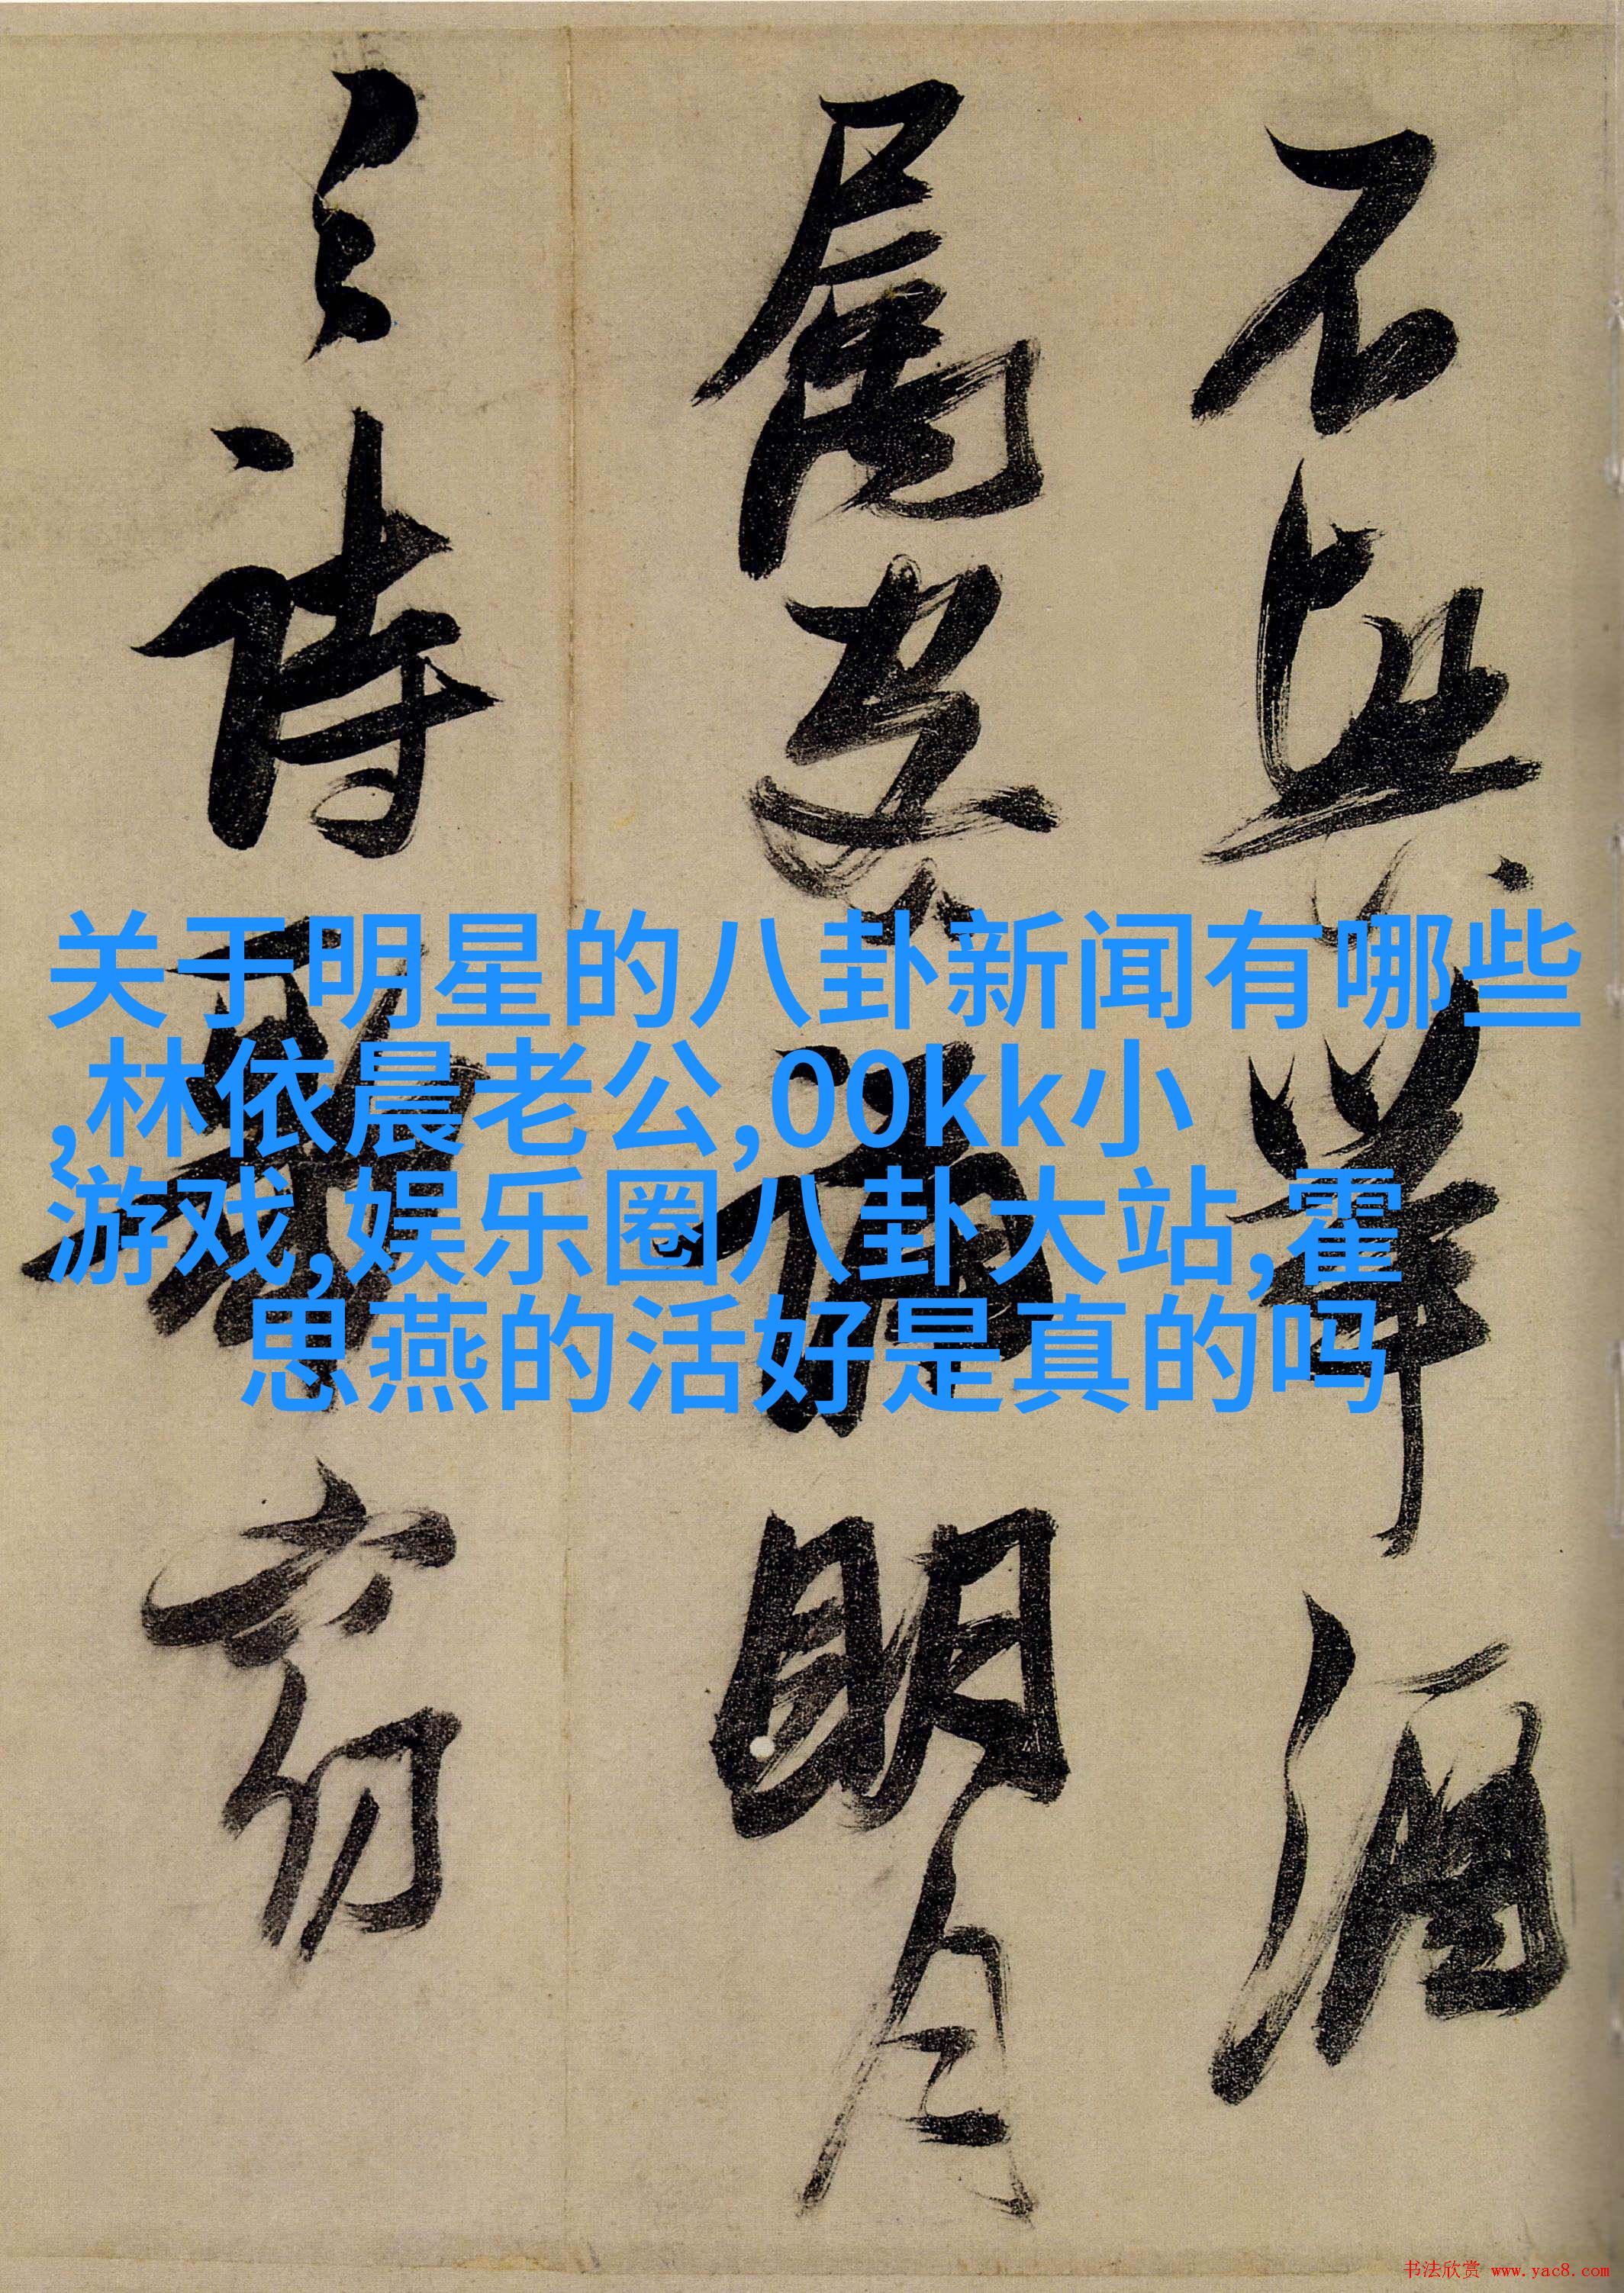 不与举酒
属客诵明月
之诗歌窈
关于明星的八卦新闻有哪些
,林依晨老公,00kk小
游戏,娱乐圈八卦大站,霍
思燕的活好是真的吗
书法欣赏 www.yac8.com